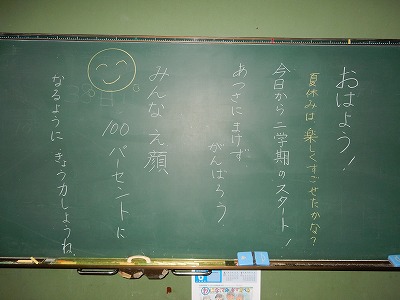 おはよう！
夏休みは楽しくすごせたかな？
今日から二学期のスタート！
あつさにまけず
がんばろう。
みんな え顔
100パーセントに
なるように きょう力しようね。